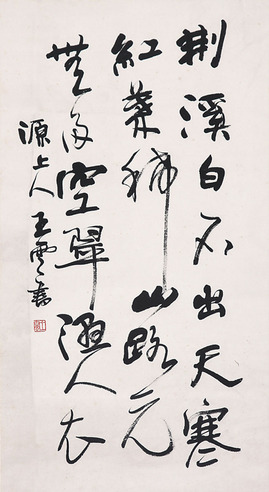 荆溪白石出天寒
紅葉稀山路元
無雨空翠濕人衣
源上人王雲書